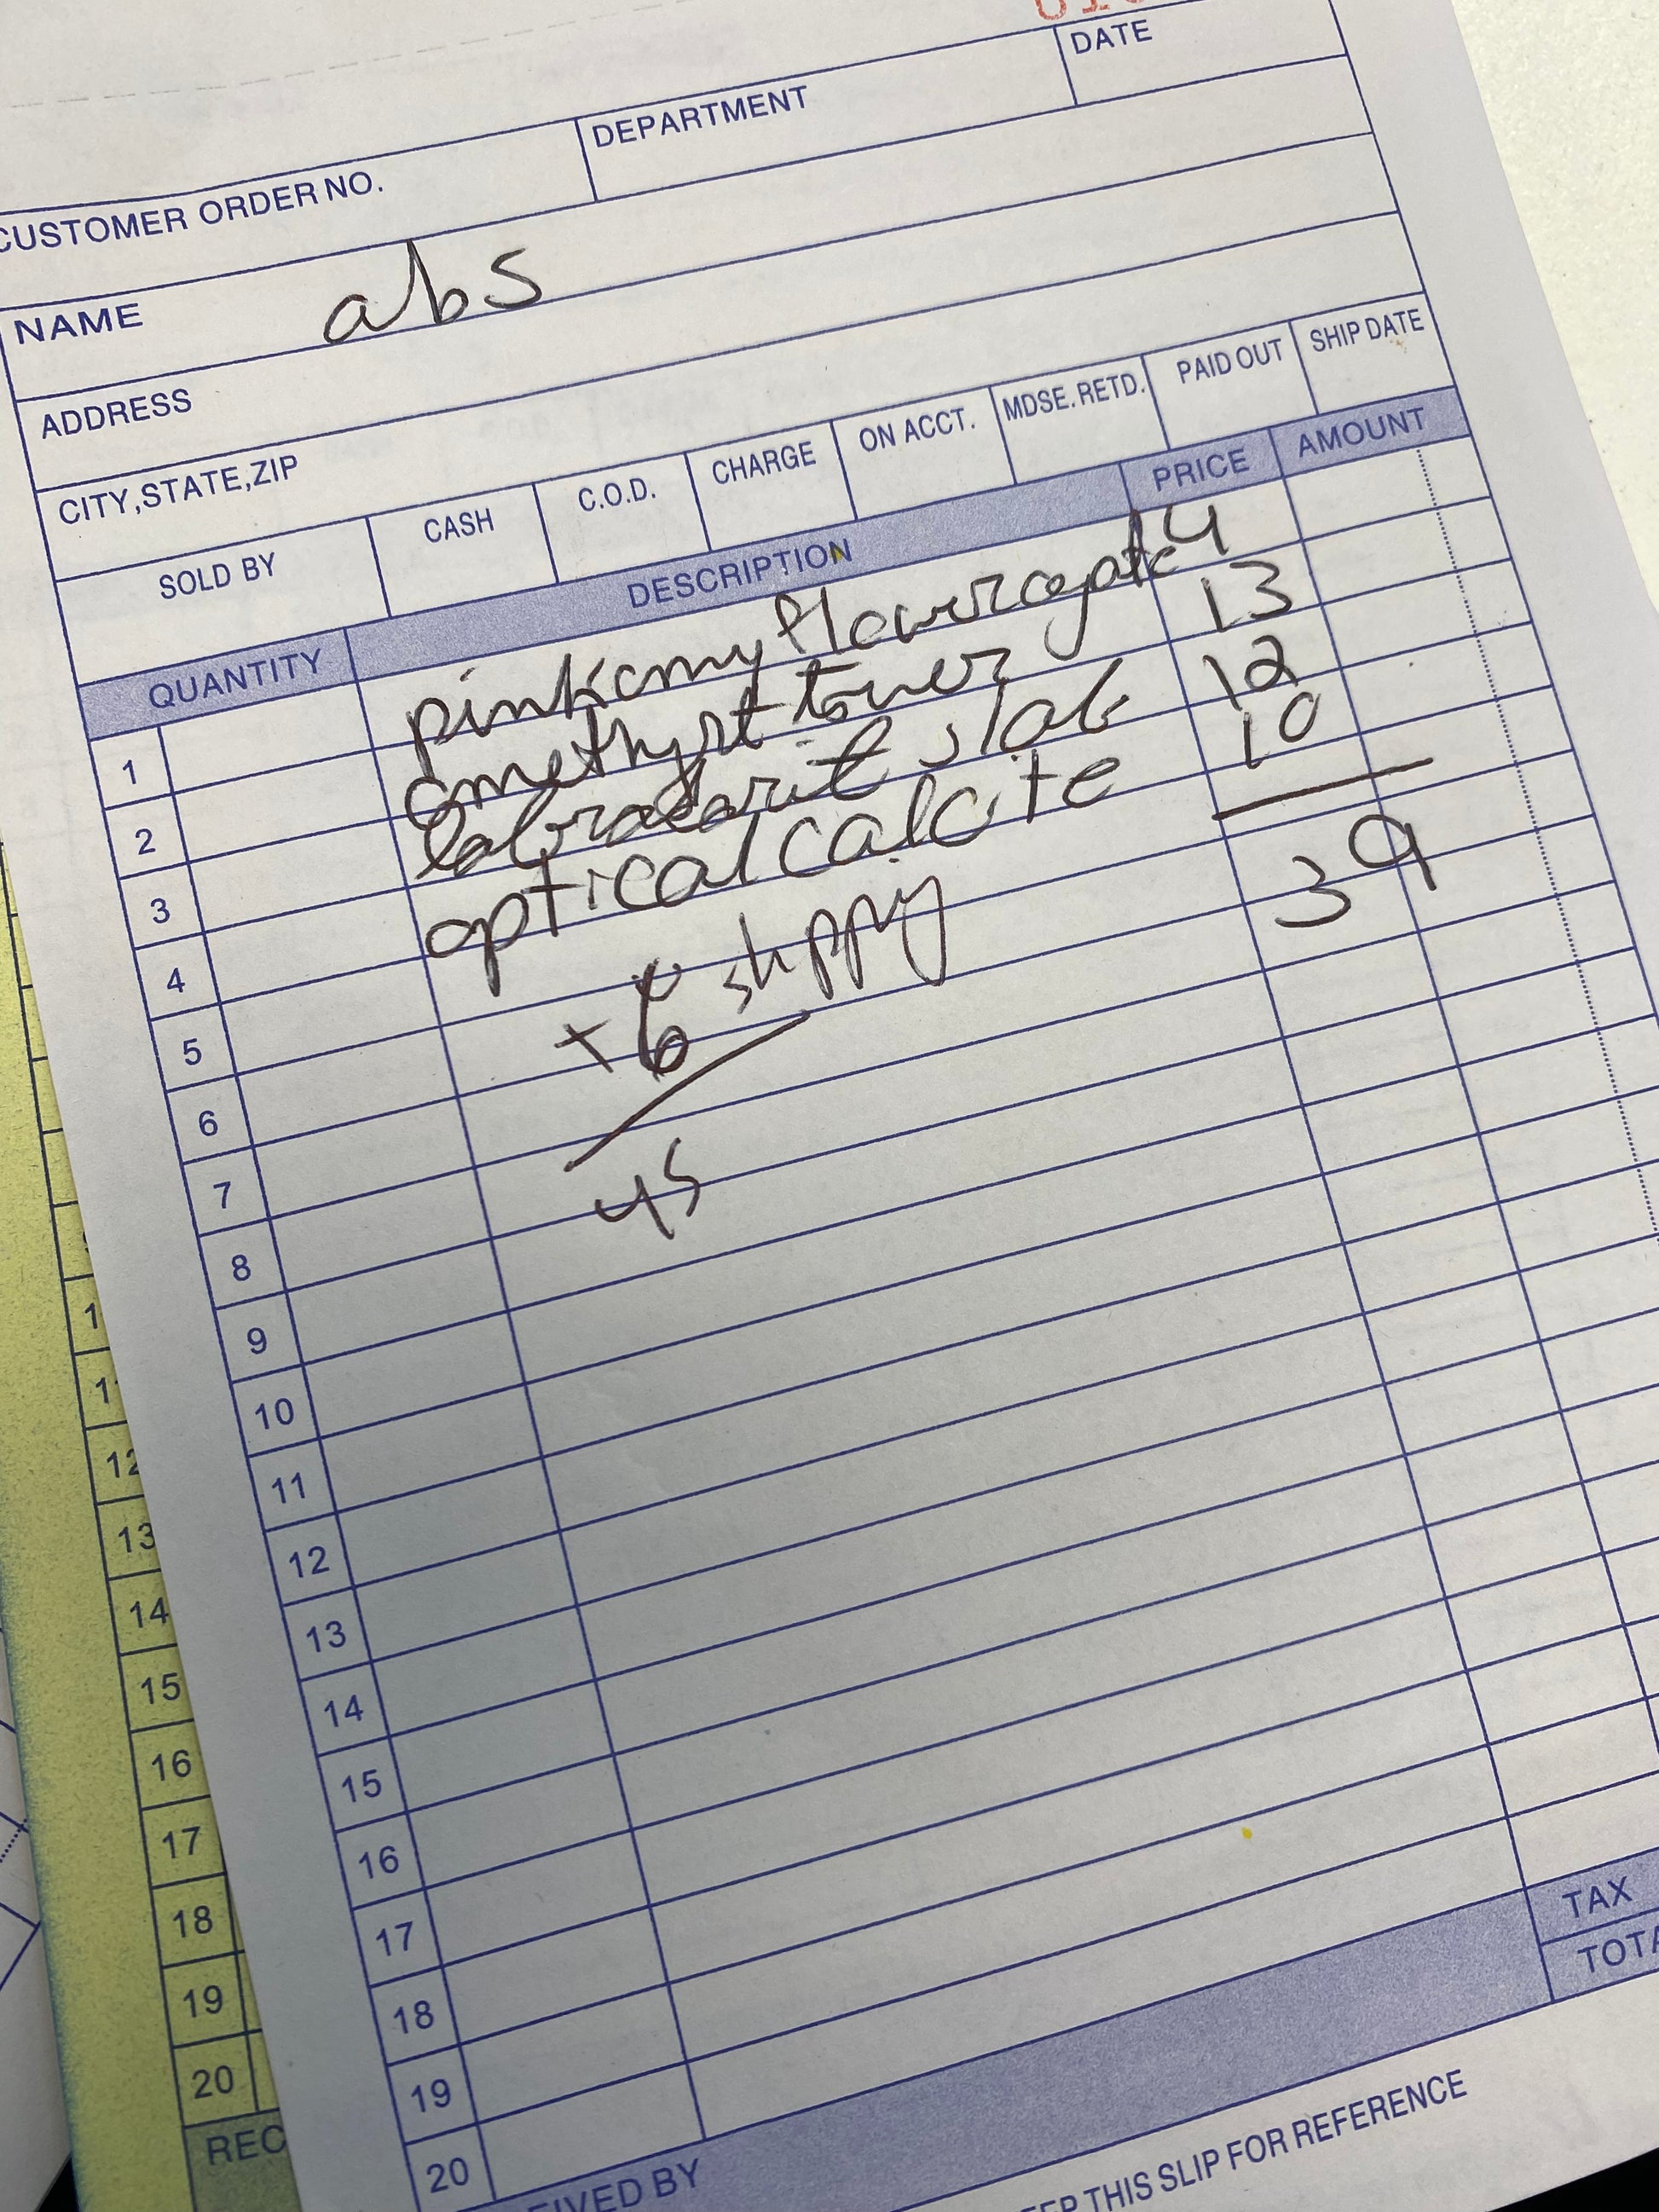 CUSTOMER ORDER NO. DEPARTMENT DATE
NAME abs
ADDRESS
CITY,STATE,ZIP
SOLD BY CASH C.O.D. CHARGE ON ACCT. MDSE. RETD. PAID OUT SHIP DATE
QUANTITY DESCRIPTION PRICE AMOUNT
1 pink amy flower agate 4
2 amethyst tower 13
3 slab 12
4 optical calcite 10
5 39
6 +6
7
8 45
9
10
11
12
13
14
15
16
17
18
19
20
TAX
TOTA
EIVED BY
EEP THIS SLIP FOR REFERENCE
12
13
14
15
16
17
18
19
20
REC